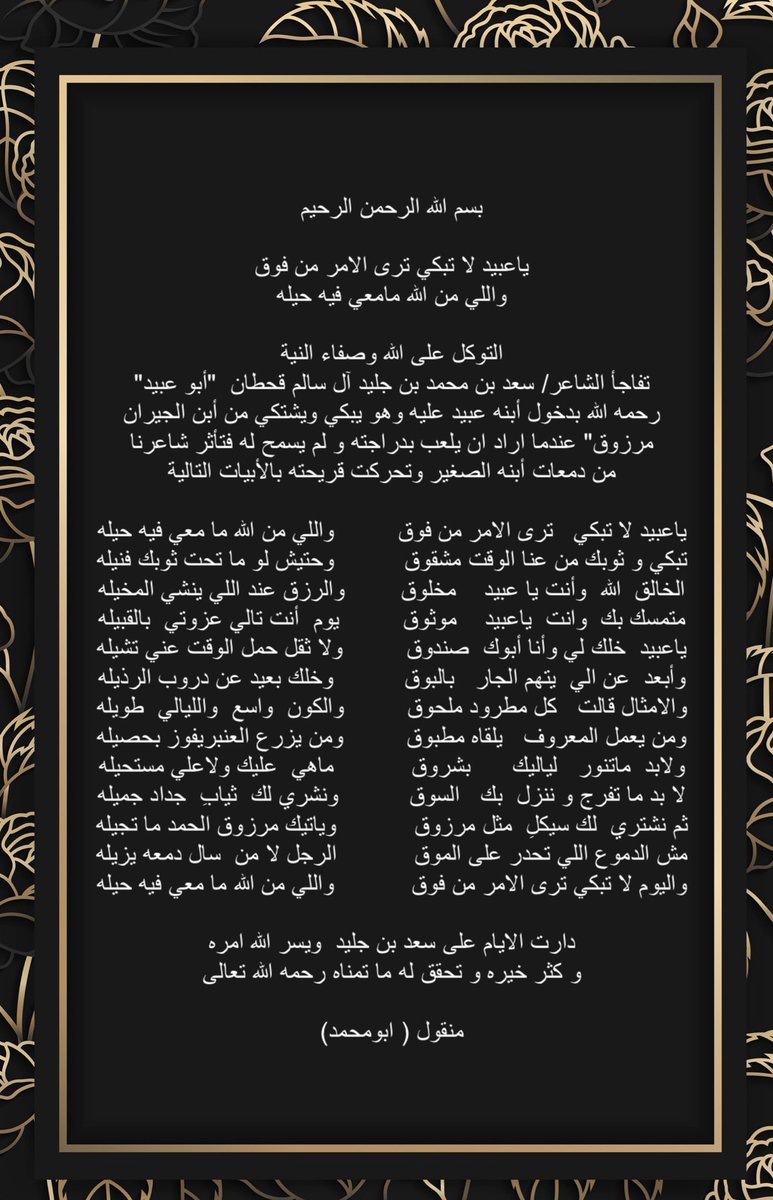 بسم الله الرحمن الرحيم
ياعبيد لا تبكي ترى الامر من فوق
واللي من الله مامعي فيه حيله
التوكل على الله وصفاء النية
تفاجأ الشاعر/ سعد بن محمد بن جليد آل سالم قحطان "أبو عبيد"
رحمه الله بدخول أبنه عبيد عليه وهو يبكي ويشتكي من أبن الجيران
مرزوق" عندما اراد ان يلعب بدراجته و لم يسمح له فتأثر شاعرنا
من دمعات أبنه الصغير وتحركت قريحته بالأبيات التالية
ياعبيد لا تبكي ترى الامر من فوق واللي من الله ما معي فيه حيله
تبكي و ثوبك من عنا الوقت مشقوق وحتيش لو ما تحت ثوبك فنيله
الخالق الله وأنت يا عبيد مخلوق والرزق عند اللي ينشي المخيله
متمسك بك وانت ياعبيد موثوق يوم أنت تالي عزوتي بالقبيله
ياعبيد خلك لي وأنا أبوك صندوق ولا ثقل حمل الوقت عني تشيله
وأبعد عن الي يتهم الجار بالبوق وخلك بعيد عن دروب الرذيله
والامثال قالت كل مطرود ملحوق والكون واسع والليالي طويله
ومن يعمل المعروف يلقاه مطبوق ومن يزرع العنبريفوز بحصيله
ولابد ماتنور لياليك بشروق ماهي عليك ولاعلي مستحيله
لا بد ما تفرج و ننزل بك السوق ونشري لك ثيابِ جداد جميله
ثم نشتري لك سيكلِ مثل مرزوق وياتيك مرزوق الحمد ما تجيله
مش الدموع اللي تحدر على الموق الرجل لا من سال دمعه يزيله
واليوم لا تبكي ترى الامر من فوق واللي من الله ما معي فيه حيله
دارت الايام على سعد بن جليد ويسر الله امره
و كثر خيره و تحقق له ما تمناه رحمه الله تعالى
منقول ( ابومحمد)